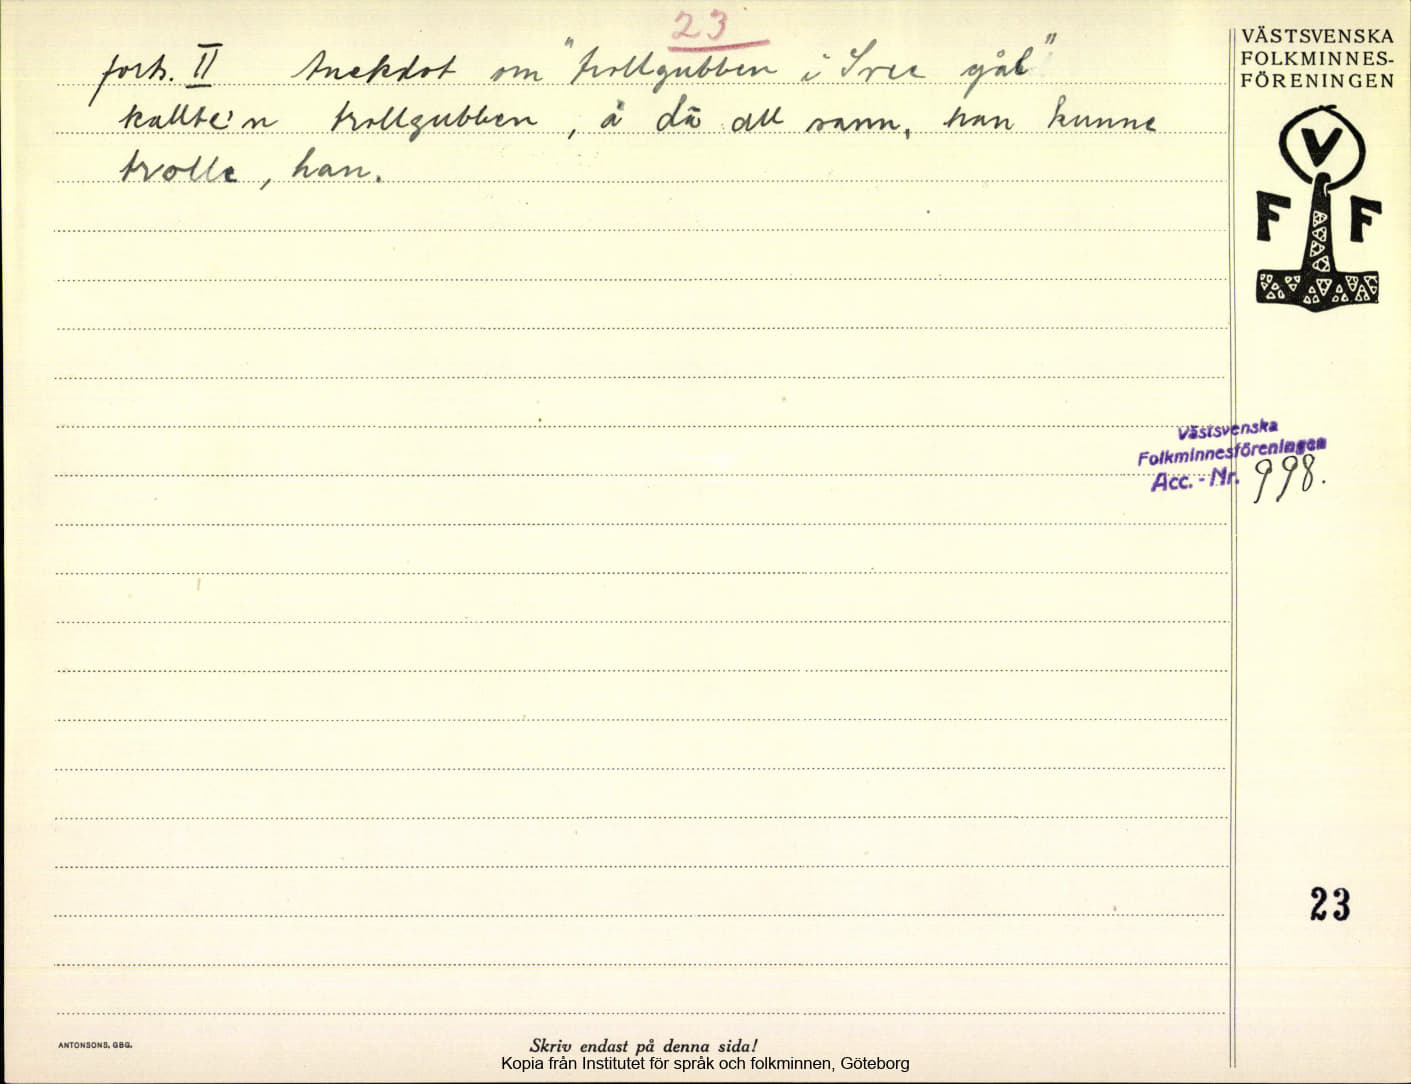 23
forts. II Anekdot om "trollgubben i Sree gål"
kallte'n trollgubben, å dä all sann, han kunne
trolle, han.
VÄSTSVENSKA
FOLKMINNES-
FÖRENINGEN
V
F F
Västsvenska
Folkminnesföreningen
Acc. - Nr. 998.
23
ANTONSONS, GBG.
Skriv endast på denna sida!
Kopia från Institutet för språk och folkminnen, Göteborg